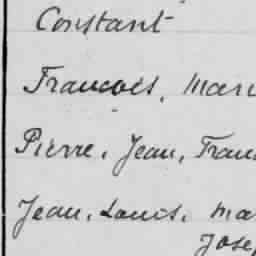 Constant
Francois, Mari
Pierre, Jean, Fran
Jean, Louis, Ma
Jose